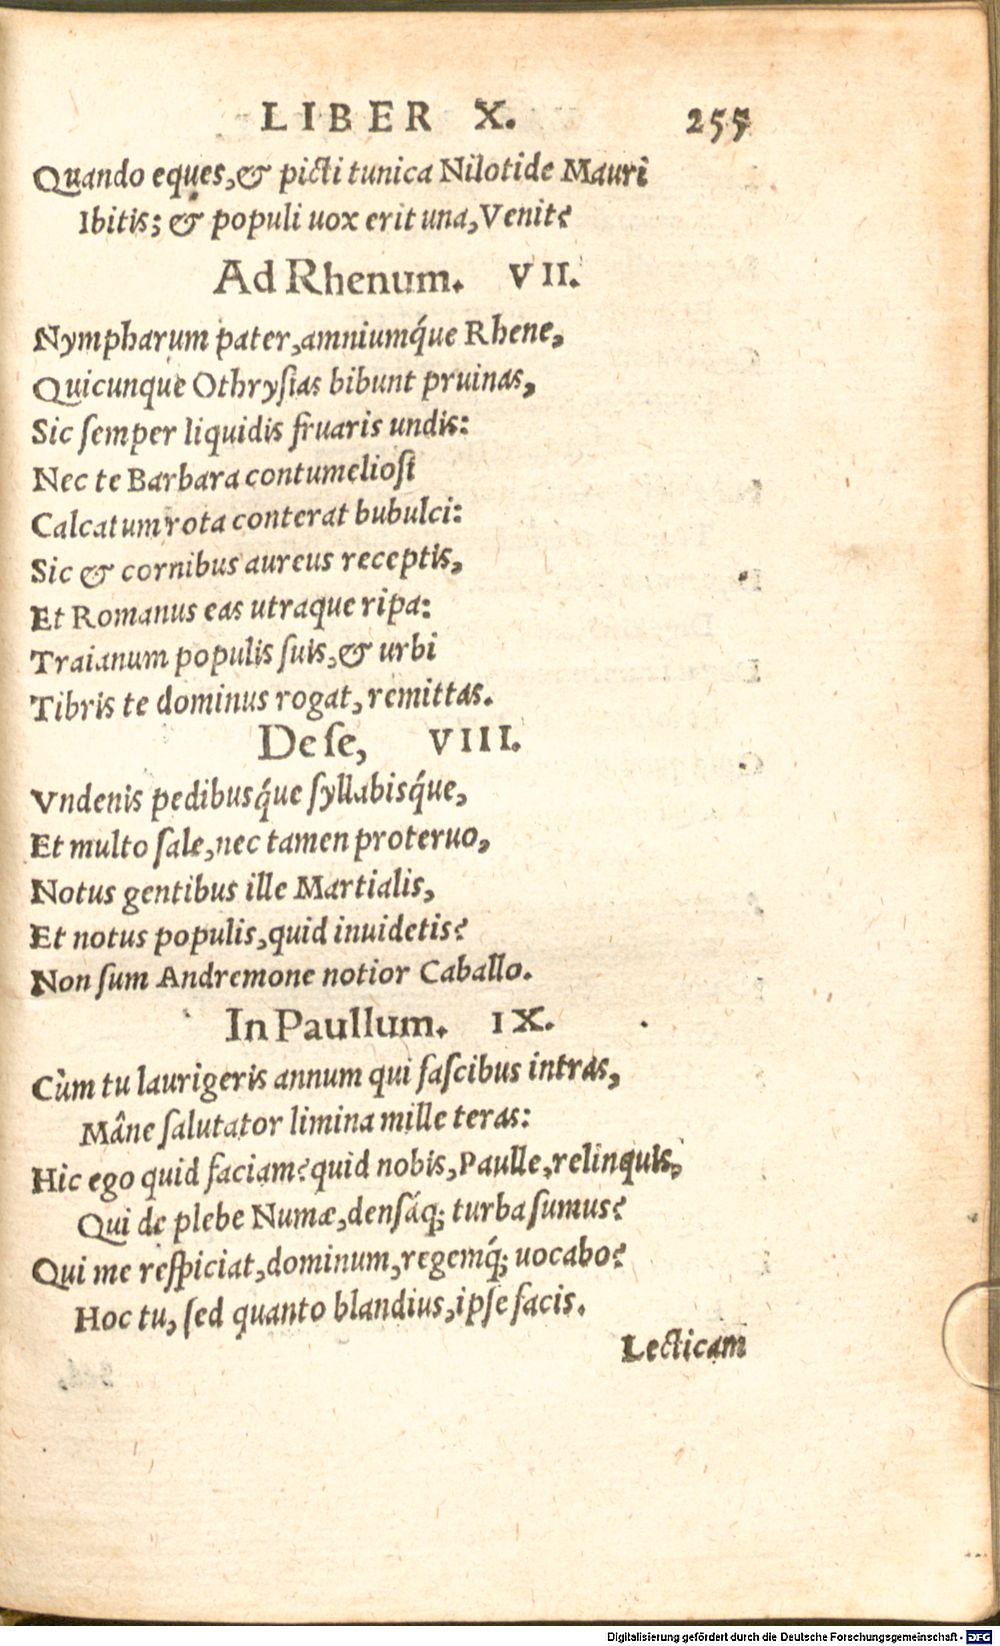 LIBER X. 255
Quando eques, & picti tunica Nilotide Mauri
Ibitis; & populi uox erit una, Venit?
Ad Rhenum. VII.
Nympharum pater, amniumq́ue Rhene,
Quicunque Othrysias bibunt pruinas,
Sic ſemper liquidis fruaris undis:
Nec te Barbara contumelioſi
Calcatum rota conterat bubulci:
Sic & cornibus aureus receptis,
Et Romanus eas utraque ripa:
Traianum populis ſuis, & urbi
Tibris te dominus rogat, remittas.
De ſe, VIII.
Vndenis pedibusq́ue ſyllabisq́ue,
Et multo ſale, nec tamen proteruo,
Notus gentibus ille Martialis,
Et notus populis, quid inuidetis?
Non ſum Andremone notior Caballo.
In Paullum. IX.
Cùm tu laurigeris annum qui faſcibus intras,
Mâne ſalutator limina mille teras:
Hic ego quid faciam? quid nobis, Paulle, relinquis,
Qui de plebe Numæ, densáq; turba ſumus?
Qui me reſpiciat, dominum, regemq́; uocabo?
Hoc tu, ſed quanto blandius, ipſe facis.
Lecticam
Digitalisierung gefördert durch die Deutsche Forschungsgemeinschaft - DFG